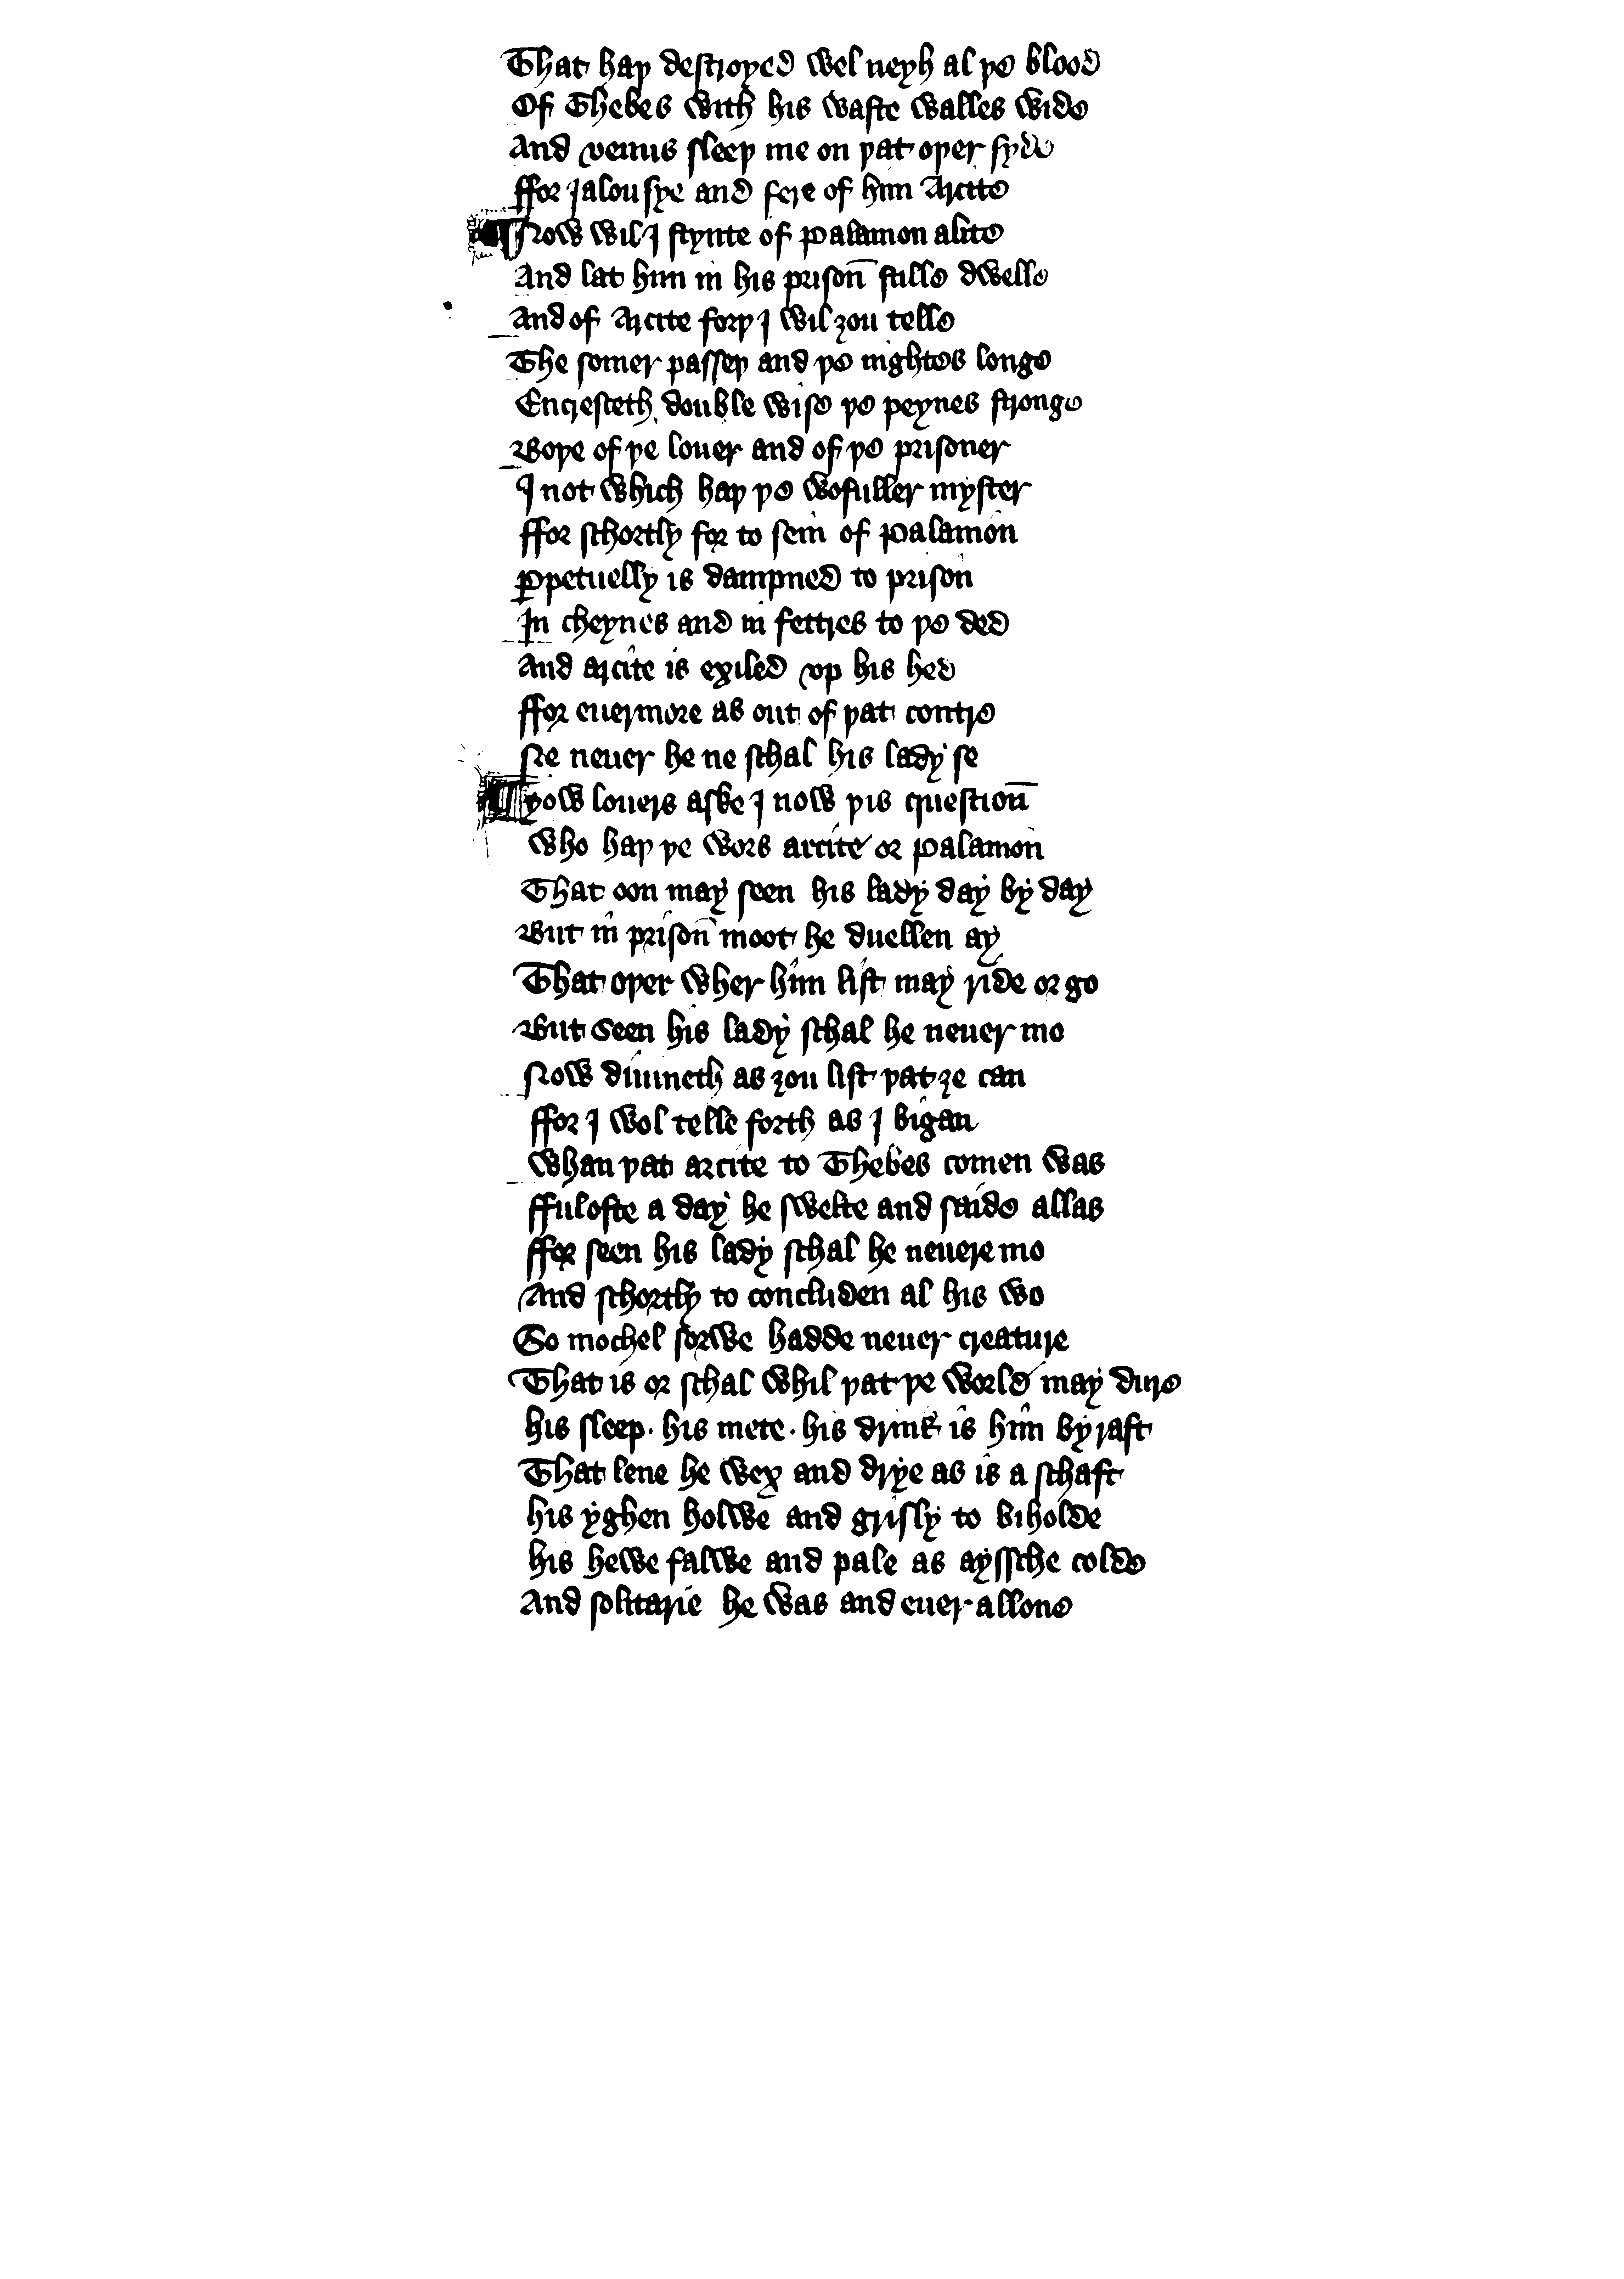 That haþ destroyed wel neyh al þe blood
Of Thebes with his waste walles wide
And venus sleeþ me on þat oþer syde
ffor jalousye and fere of him Arcite
¶ Now wil I stynte of Palamon alite
And lat him in his prisoñ stille dwelle
And of Arcite forþ I wil ȝou telle
The somer passeþ and þe nightes longe
Encresceth double wise þe peynes stronge
Boþe of þe louer and of þe prisoner
I not which haþ þe wofuller myster
ffor schortly for to sein of Palamon
Ꝑpetuelly is dampned to prison
In cheynes and in fettres to þe ded
And arcite is exiled vp his hed
ffor euermore as out of þat contre
Ne neuer he ne schal his lady se
¶ ȝow louers aske I now þis questioñ
Who haþ þe wors arcite or Palamon
That oon may seen his lady day by day
But in prisoñ moot he duellen ay
That oþer wher him list may ride or go
But seen his lady schal he neuer mo
Now diuineth as ȝou list þat ȝe can
ffor I wol telle forth as I bigan
Whan þat arcite to Thebes comen was
fful ofte a day he swelte and saide allas
ffor seen his lady schal he neuere mo
And schortly to concluden al his wo
So mochel sorwe hadde neuer creature
That is or schal whil þat þe world may dure
his sleep · his mete · his drink is him byraft
That lene he wex and drye as is a schaft
his yghen holwe and grisly to biholde
his hewe falwe and pale as ayssche colde
And solitarie he was and euer allone